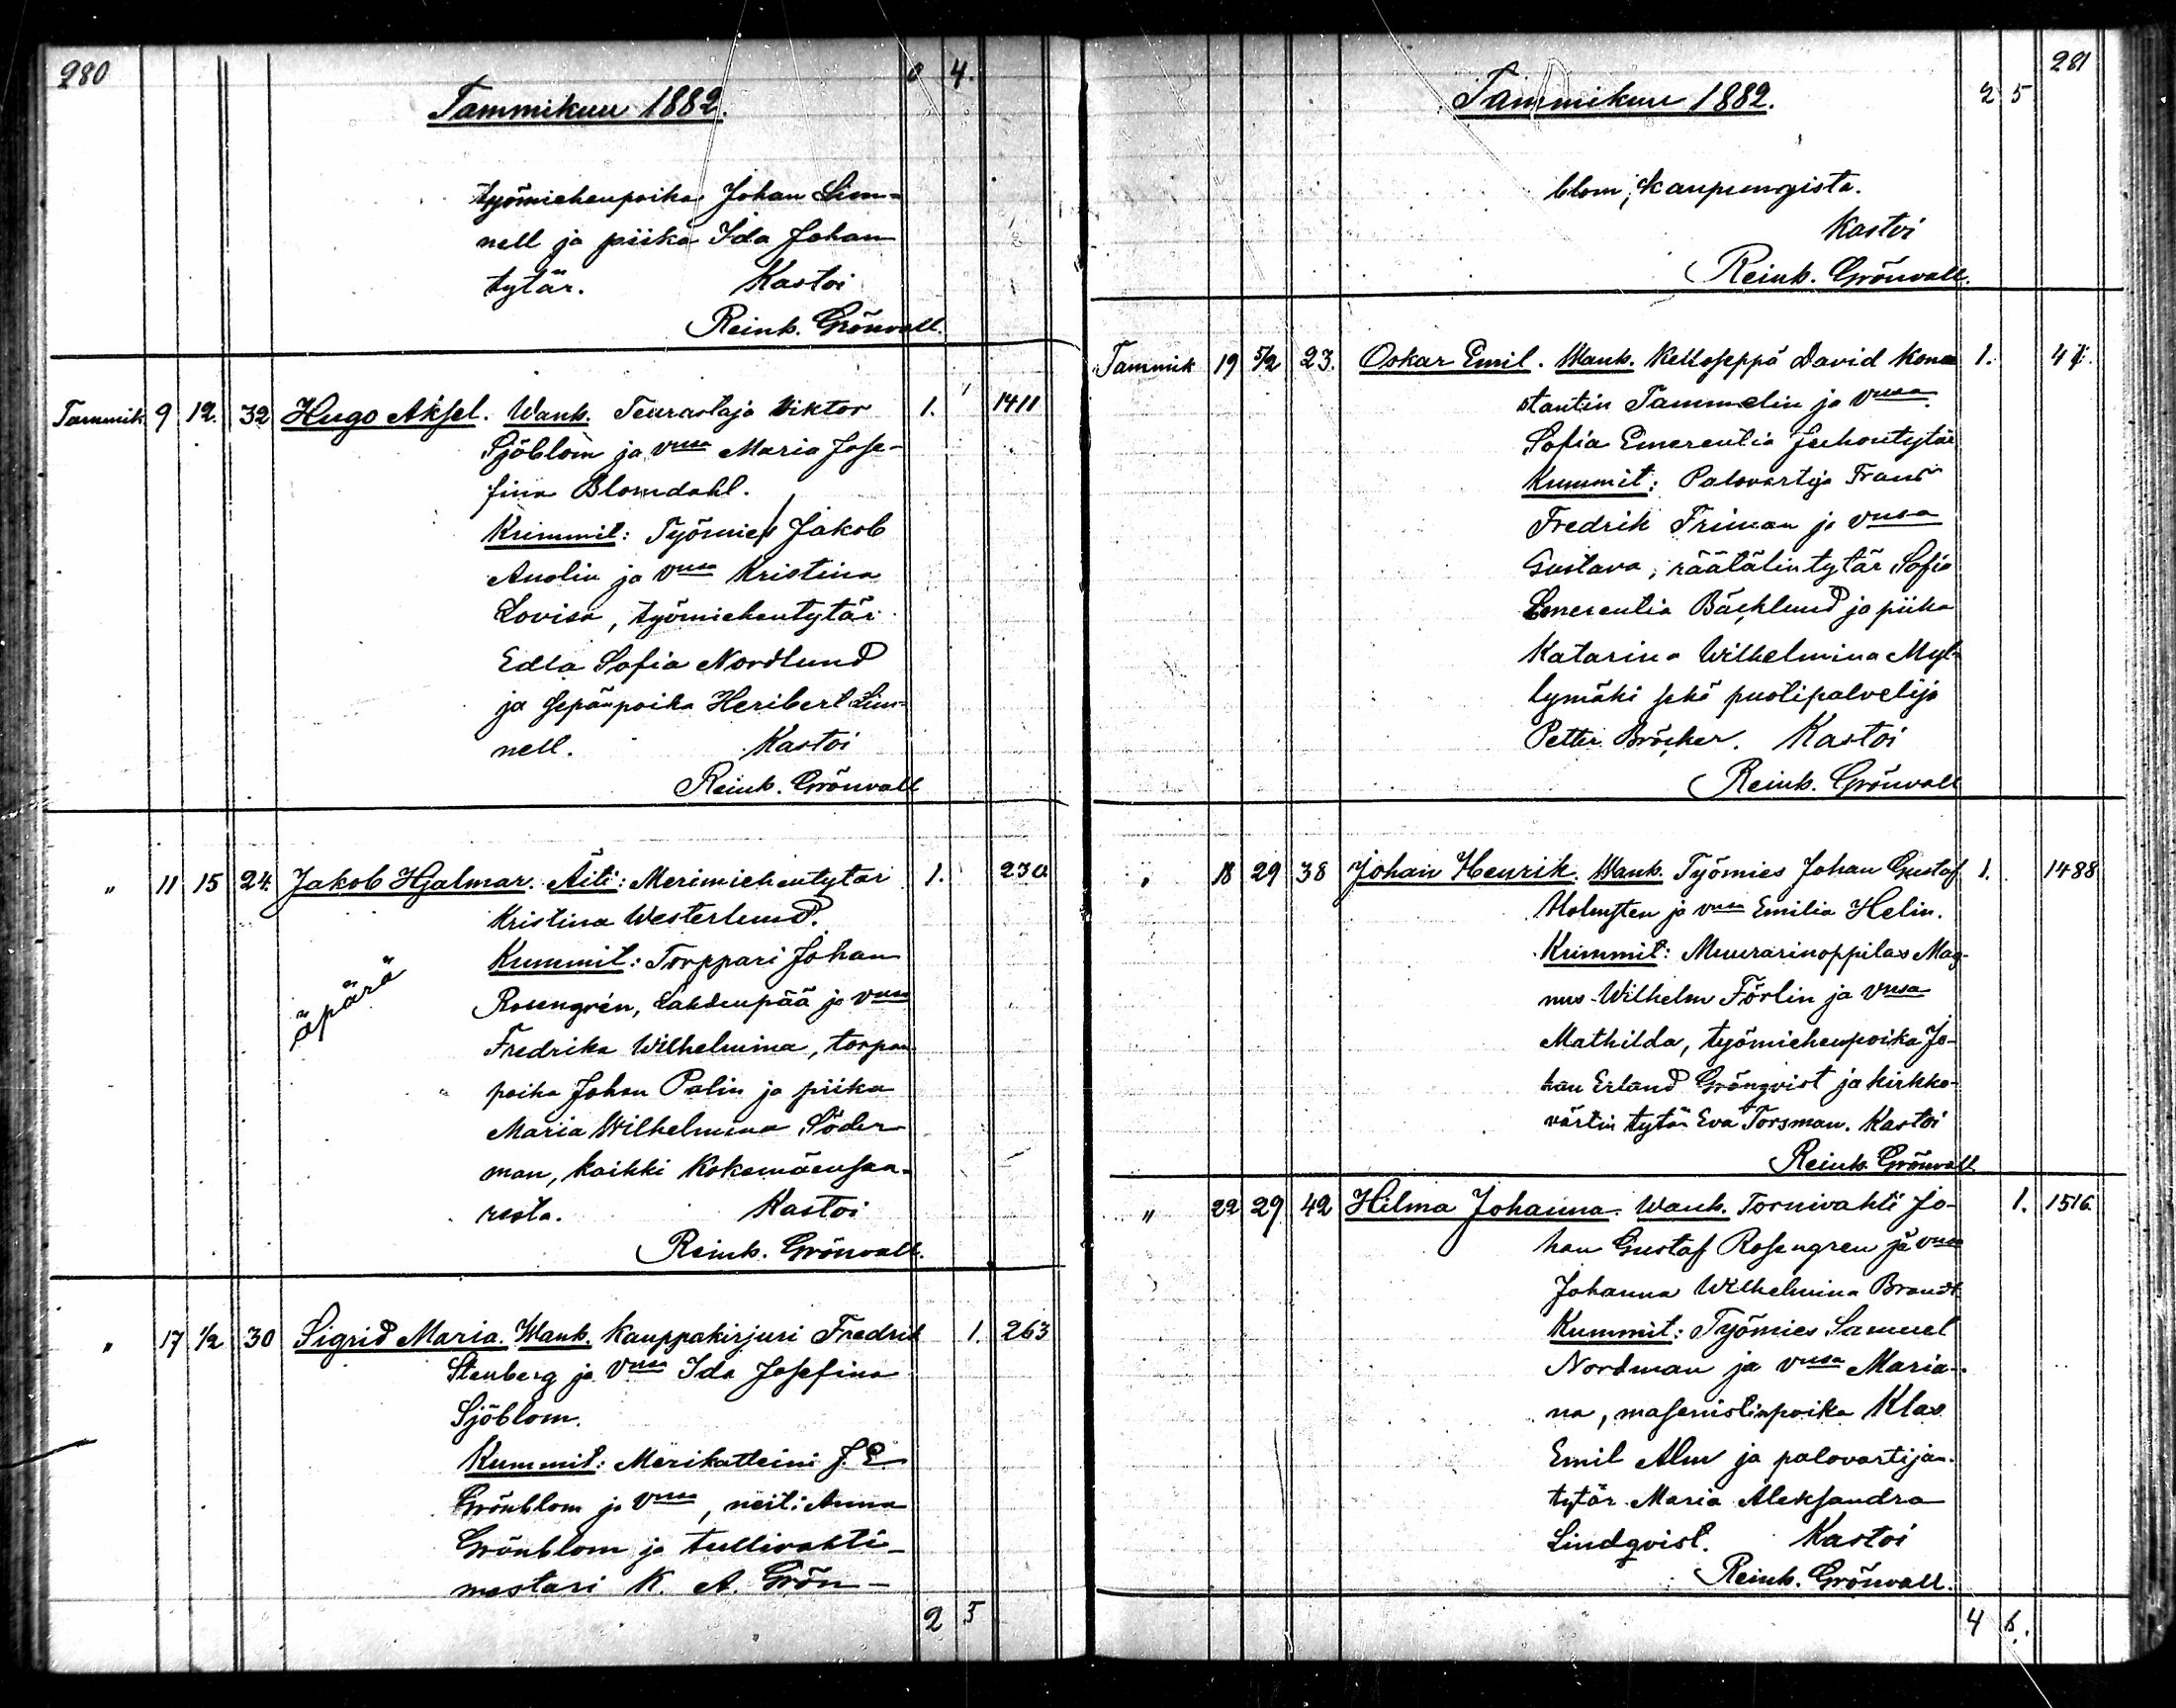 280
0 4.
Tammikuu 1882.
työmiehenpoika Johan Lin-
nell ja piika Ida Johan
tytär. Kastoi
Reinh. Grönvall.
Tammik. 9 12. 32 Hugo Aksel. Wanh. Teurastaja Viktor 1. 1411
Sjöblom ja vmsa Maria Jose-
fina Blomdahl.
Kummit: Työmies Jakob
Anolin ja vmsa Kristina
Lovisa, työmiehentytär
Edla Sofia Nordlund
ja sepänpoika Heribert Lin-
nell. Kastoi
Reinh. Grönvall
" 11 15 24. Jakob Hjalmar. Äiti: Merimiehentytär 1. 230
Kristina Westerlund.
Kummit: Torppari Johan
äpärä
Rosengrén, Lahdenpää ja vmsa
Fredrika Wilhelmina, torpan
poika Johan Palin ja piika
Maria Wilhelmina Söder
man, kaikki Kokemäensaa-
resta. Kastoi
Reinh. Grönvall.
" 17 1/2 30 Sigrid Maria. Wanh. Kauppakirjuri Fredrik 1. 263
Stenberg ja vmsa Ida Josefina
Sjöblom.
Kummit: Merikatteini J. E.
Grönblom ja vmsa, neiti Anna
Grönblom ja tullivahti-
mestari K. A. Grön-
2 5
281
Tammikuu 1882. 2 5
blom, kaupungista.
Kastoi
Reinh. Grönvall.
Tammik 19 5/2 23. Oskar Emil. Wanh. Kelloseppä David Kon- 1. 47.
stantin Tammelin ja vmsa
Sofia Emerentia Juhontytär
Kummit: Palovartija Frans
Fredrik Friman ja vmsa
Gustava, räätälintytär Sofia
Emerentia Bäcklund ja piika
Katarina Wilhelmina Myl-
lymäki sekä puotipalvelija
Petter Bröcker. Kastoi
Reinh. Grönvall
" 18 29 38 Johan Henrik. Wanh. Työmies Johan Gustaf 1. 1488
Holmsten ja vmsa Emilia Helin.
Kummit: Muurarinoppilas Mag-
nus Wilhelm Förlin ja vmsa
Mathilda, työmiehenpoika Jo-
han Erland Grönqvist ja kirkko-
värtin tytär Eva Forsman. Kastoi
Reinh. Grönvall
" 22 29 42 Hilma Johanna. Wanh. Tornivahti Jo- 1. 1516.
han Gustaf Rosengren ja vmsa
Johanna Wilhelmina Brandt
Kummit: Työmies Samuel
Nordman ja vmsa Maria-
na, masenistinpoika Klas
Emil Alm ja palovartijan-
tytär Maria Aleksandra
Lindqvist. Kastoi
Reinh. Grönvall.
4 6.